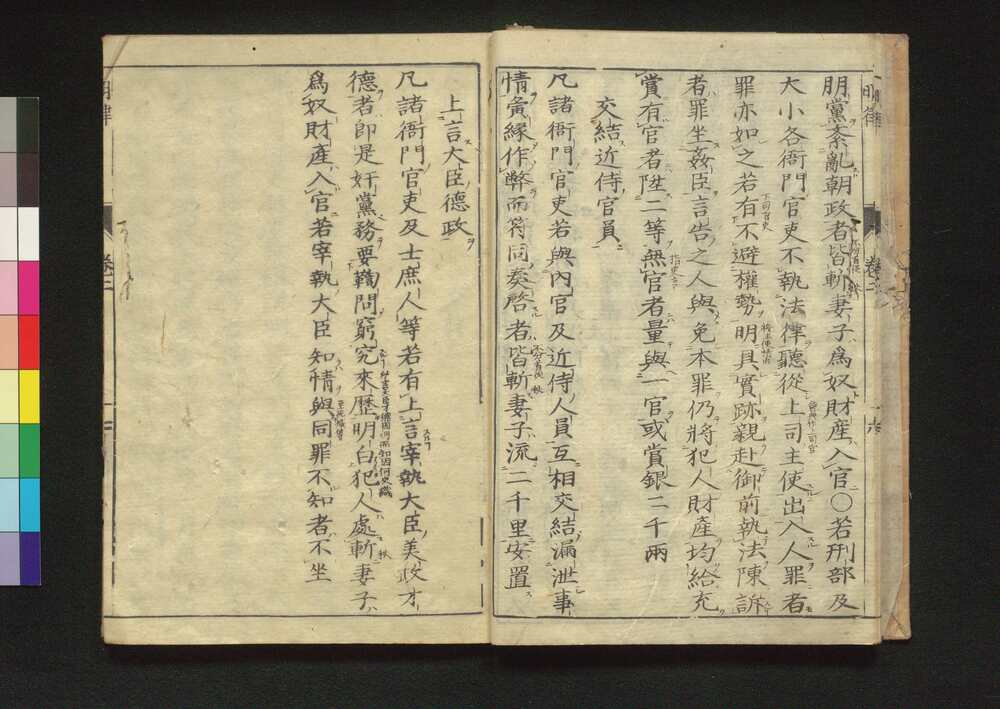 朋黨紊亂朝政者皆斬妻子爲奴財產入官○若刑部及
大小各衙門官吏不執法律聽從上司主使出入人罪者
罪亦如之若有不避權勢明具實跡親赴御前執法陳訴
者罪坐姦臣言告之人與免本罪仍將犯人財產均給充
賞有官者陞二等無官者量與一官或賞銀二千兩
交結近侍官員
凡諸衙門官吏若與內官及近侍人員互相交結漏泄事
情夤緣作弊而符同奏啓者皆斬妻子流二千里安置
上言大臣德政
凡諸衙門官吏及士庶人等若有上言宰執大臣美政才
德者卽是奸黨務要鞫問窮究來歷明白犯人處斬妻子
爲奴財產入官若宰執大臣知情與同罪不知者不坐
明律
卷二